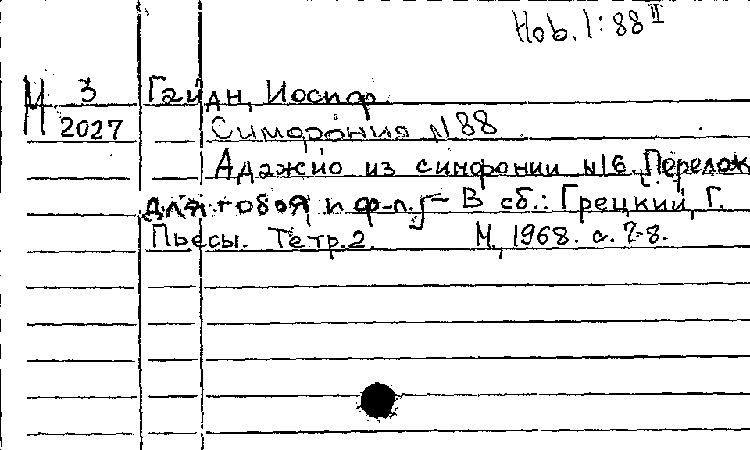 Hob. I:88 II
М 3 Гайдн, Иосиф.
2027 Симфония №88
Адажио из симфонии №16. Перелож.
для гобоя и ф-п.] – В сб.: Грецкий, Г.
Пьесы. Тетр.2. М., 1968. с. 7-8.